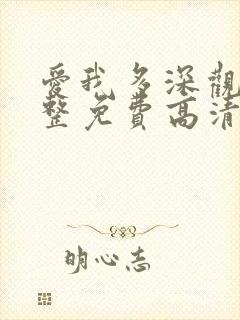 愛我多深觀
整免費高清
明心志